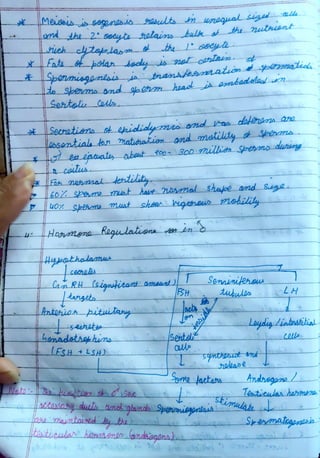 * Meiosis is oogenesis results in unequal sized cells
and the 2° oocyte retains bulk of the nutrient
rich cytoplasm of the 1° oocyte
* Fate of polar body is not certain
* Spermiogenesis is transformation of spermatids
to sperms and sperm head is embedded in
Sertoli cells.
* Secretions of epididymis and vas deferens are
essentials for maturation and motility of sperms
* ♂ ejaculates about 200-300 million sperms during
a coitus
* For normal fertility
60% sperms must have normal shape and size.
40% sperms must show vigorous mobility
4: Hormone Regulations in ♂
Hypothalamus
↓ secretes
GnRH (significant amount)
↓ targets
Anterior pituitary
↓ secretes
Gonadotrophins
(FSH + LSH)
Seminiferous
tubules
FSH
acts on
inside
Sertoli
cells
↓
Some factors
↓
Spermiogenesis
LH
↓
Leydig/interstitial
cells
synthesise and
release
Androgens/
Testicular hormone
stimulate
Spermatogenesis
Note:- The function of ♂ sex
accessory ducts and glands
are maintained by the
testicular hormones (androgens)